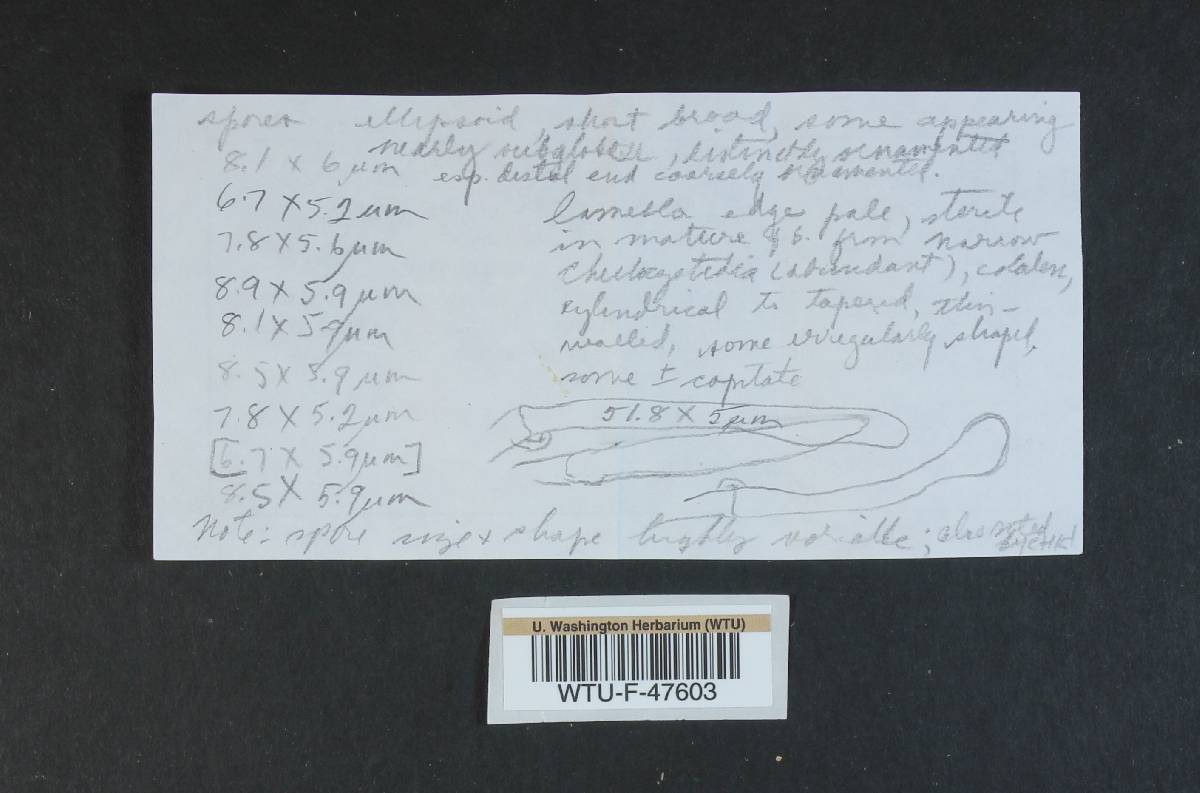 spores ellipsoid, short broad, some appearing
nearly subglobose, distinctly ornamented
esp. distal end coarsely ornamented.
8.1 x 6 µm
6.7 x 5.2 µm
7.8 x 5.6 µm
8.9 x 5.9 µm
8.1 x 5.9 µm
8.5 x 5.9 µm
7.8 x 5.2 µm
[6.7 x 5.9 µm]
8.5 x 5.9 µm
lamella edge pale, sterile
in mature f b. from narrow
cheilocystidia (abundant), colorless,
cylindrical to tapered, thin-
walled, some irregularly shaped,
some ± capitate
51.8 x 5 µm
Note: spore size & shape highly variable; also noted
by CHK!
U. Washington Herbarium (WTU)
WTU-F-47603